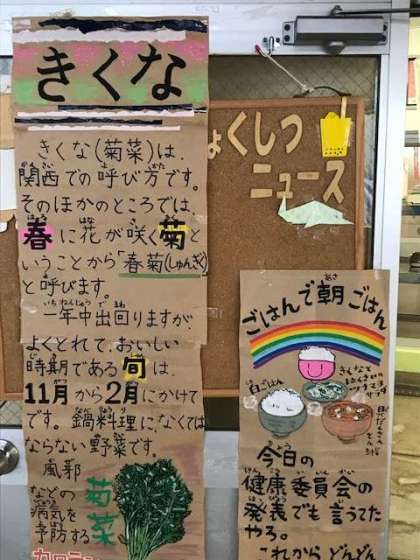 きくな
きくな(菊菜)は、
関西での呼び方です。
そのほかのところでは、
春に花が咲く菊と
いうことから「春菊(しゅんぎく)」
と呼びます。
一年中出回りますが、
よくとれて、おいしい
時期である旬は、
11月から2月にかけて
です。鍋料理になくては
ならない野菜です。
風邪
などの
病気を
予防する
菊菜
ょくしつ
ニュース
ごはんで朝ごはん
今日の
健康委員会の
発表でも言うてた
やろ。
これからどんどん